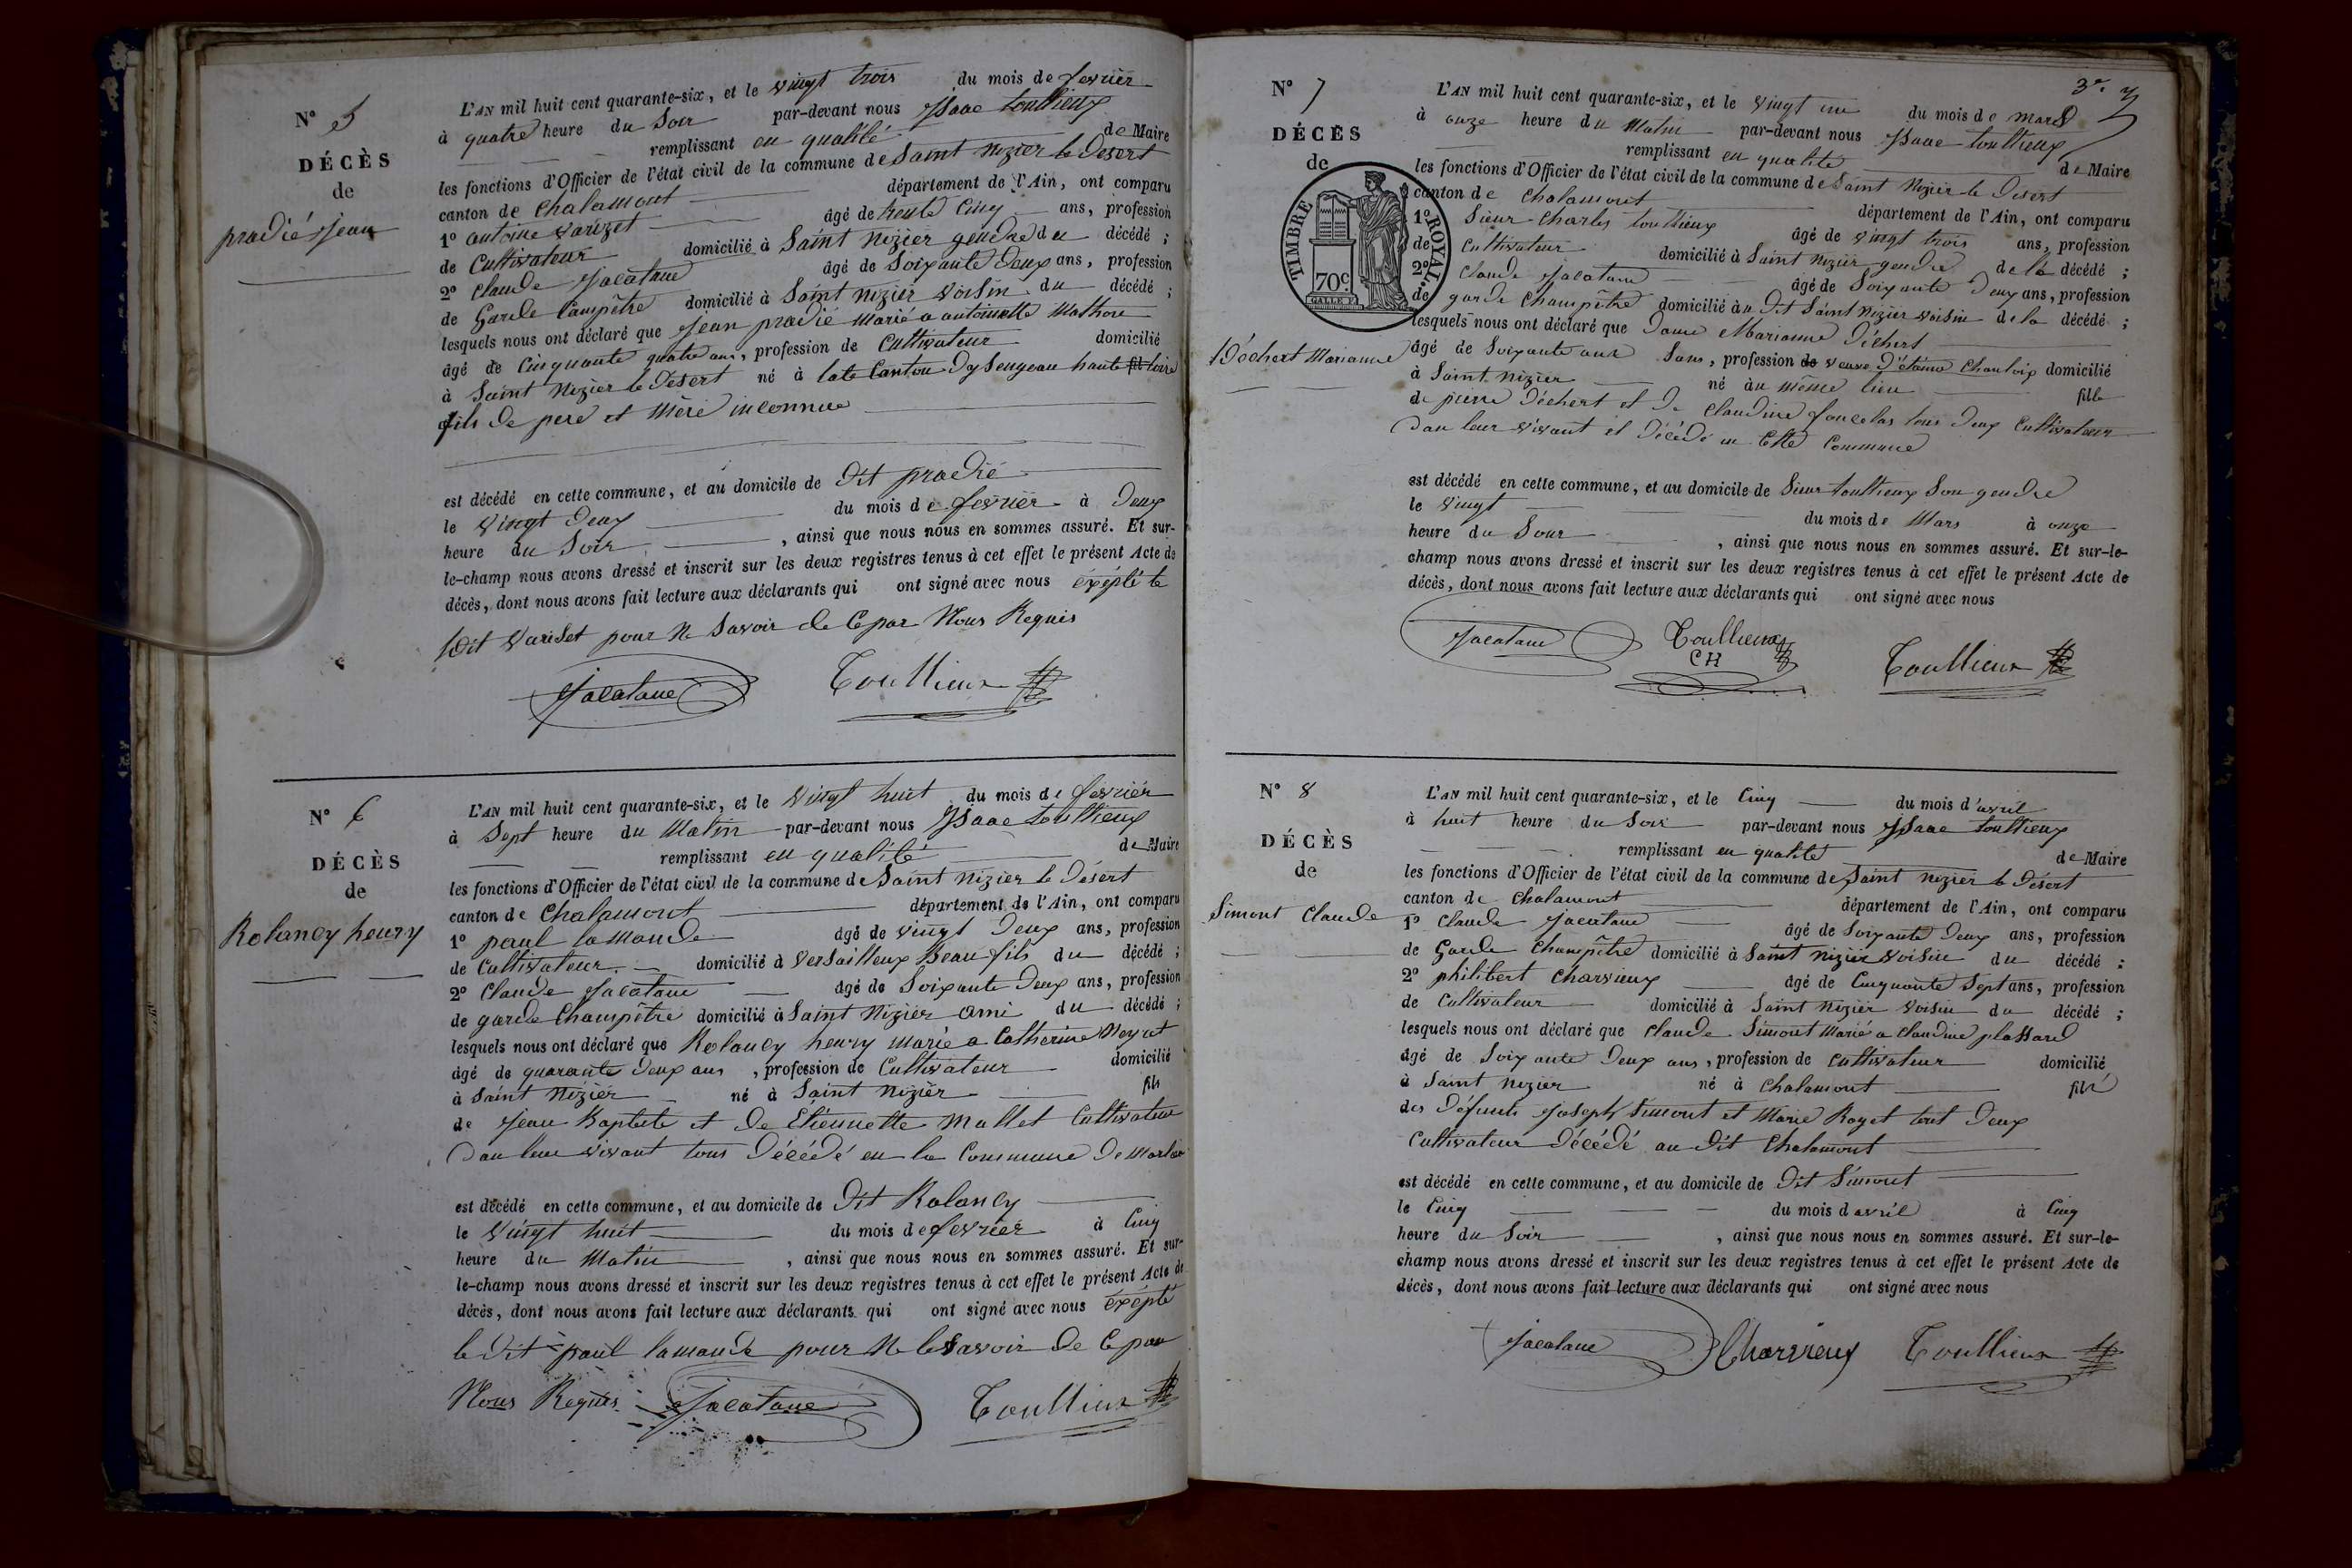 N° 5
DÉCÈS
de
pradié Jean
L'AN mil huit cent quarante-six, et le vingt trois du mois de fevrier
à quatre heure du Soir par-devant nous Isaac toullieux
remplissant en qualité de Maire
les fonctions d'Officier de l'état civil de la commune de Saint Nizier le Desert
canton de Chalamont département de l'Ain, ont comparu
1° antoine varizet âgé de trente Cinq ans, profession
de Cultivateur domicilié à Saint Nizier gendre du décédé ;
2° Claude Jacatane âgé de Soixante Deux ans, profession
de Garde Campêtre domicilié à Saint Nizier voisin du décédé ;
lesquels nous ont déclaré que Jean pradié Marié a antoinette Mathon
âgé de Cinquante quatre ans, profession de Cultivateur domicilié
à Saint Nizier le Desert né à late Canton Dysengeau haute loire
fils De pere et Mère inconnue
est décédé en cette commune, et au domicile de Dit pradié
le vingt Deux du mois de fevrier à Deux
heure du Soir , ainsi que nous nous en sommes assuré. Et sur-
le-champ nous avons dressé et inscrit sur les deux registres tenus à cet effet le présent Acte de
décès, dont nous avons fait lecture aux déclarants qui ont signé avec nous éxépté le
Dit variset pour Ne Savoir de Ce par Nous Requis
Jacatane Toullieux
N° 6
DÉCÈS
de
Rolancy henry
L'AN mil huit cent quarante-six, et le vingt huit du mois de fevrier
à Sept heure du Matin par-devant nous Isaac toullieux
remplissant en qualité de Maire
les fonctions d'Officier de l'état civil de la commune de Saint Nizier le Désert
canton de Chalamont département de l'Ain, ont comparu
1° paul lamande âgé de vingt Deux ans, profession
de Cultivateur domicilié à Versailleux Beau fils du décédé ;
2° Claude Jacatane âgé de Soixante Deux ans, profession
de garde Champêtre domicilié à Saint Nizier ami du décédé ;
lesquels nous ont déclaré que Rolancy henry Marié a Catherine
âgé de quarante Deux ans , profession de Cultivateur domicilié
à Saint Nizier né à Saint Nizier fils
de Jean Baptiste et De Etiennette Mallet Cultivateur
Dan leur vivant tous Décédé en la Commune De
est décédé en cette commune, et au domicile de Dit Rolancy
le vingt huit du mois de fevrier à Cinq
heure du Matin , ainsi que nous nous en sommes assuré. Et sur-
le-champ nous avons dressé et inscrit sur les deux registres tenus à cet effet le présent Acte de
décès, dont nous avons fait lecture aux déclarants qui ont signé avec nous éxépté
le Dit paul lamande pour Ne le Savoir de Ce par
Nous Requis Jacatane Toullieux
3e
N° 7
DÉCÈS
de
TIMBRE ROYAL
70c
Déchert Marianne
L'AN mil huit cent quarante-six, et le vingt un du mois de mars
à onze heure du Matin par-devant nous Isaac toullieux
remplissant en qualité de Maire
les fonctions d'Officier de l'état civil de la commune de Saint Nizier le Desert
canton de Chalamont département de l'Ain, ont comparu
1° Sieur Charles toullieux âgé de vingt trois ans, profession
de Cultivateur domicilié à Saint Nizier gendre de la décédé ;
2° Claude Jacatane âgé de Soixante Deux ans, profession
de garde Champêtre domicilié au Dit Saint Nizier voisin de la décédé ;
lesquels nous ont déclaré que Dame Marianne Déchert
âgé de Soixante ans, profession de veuve D'étienne Chauloix domicilié
à Saint Nizier né au même lieu fille
de pierre Déchert et De Claudine foncelas tous Deux Cultivateur
Dan leur vivant et Décédé en Cette Commune
est décédé en cette commune, et au domicile de Sieur toullieux Son gendre
le vingt du mois de Mars à onze
heure du Soir , ainsi que nous nous en sommes assuré. Et sur-le-
champ nous avons dressé et inscrit sur les deux registres tenus à cet effet le présent Acte de
décès, dont nous avons fait lecture aux déclarants qui ont signé avec nous
Jacatane Toullieux CH Toullieux
N° 8
DÉCÈS
de
Simont Claude
L'AN mil huit cent quarante-six, et le Cinq du mois d'avril
à huit heure du Soir par-devant nous Isaac toullieux
remplissant en qualité de Maire
les fonctions d'Officier de l'état civil de la commune de Saint Nizier le Désert
canton de Chalamont département de l'Ain, ont comparu
1° Claude Jacatane âgé de Soixante Deux ans, profession
de Garde Champêtre domicilié à Saint Nizier voisin du décédé ;
2° philibert Charvieux âgé de Cinquante Sept ans, profession
de Cultivateur domicilié à Saint Nizier voisin du décédé ;
lesquels nous ont déclaré que Claude Simont Marié a Claudine plassard
âgé de Soixante Deux ans , profession de Cultivateur domicilié
à Saint Nizier né à Chalamont fils
des Défunts Joseph Simont et Marie Royet tout Deux
Cultivateur Décédé au Dit Chalamont
est décédé en cette commune, et au domicile de Dit Simont
le Cinq du mois d'avril à Cinq
heure du Soir , ainsi que nous nous en sommes assuré. Et sur-le-
champ nous avons dressé et inscrit sur les deux registres tenus à cet effet le présent Acte de
décès, dont nous avons fait lecture aux déclarants qui ont signé avec nous
Jacatane Charvieux Toullieux